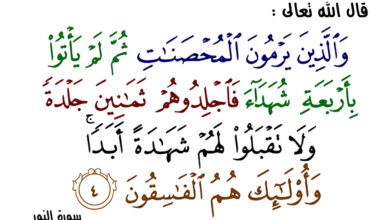 قال الله تعالى :
وَالَّذِينَ يَرْمُونَ الْمُحْصَنَاتِ ثُمَّ لَمْ يَأْتُوا۟
بِأَرْبَعَةِ شُهَدَآءَ فَاجْلِدُوهُمْ ثَمَانِينَ جَلْدَةً
وَلَا تَقْبَلُوا۟ لَهُمْ شَهَادَةً أَبَدًا ۚ
وَأُو۟لَـٰٓئِكَ هُمُ الْفَاسِقُونَ ٤
سورة النور